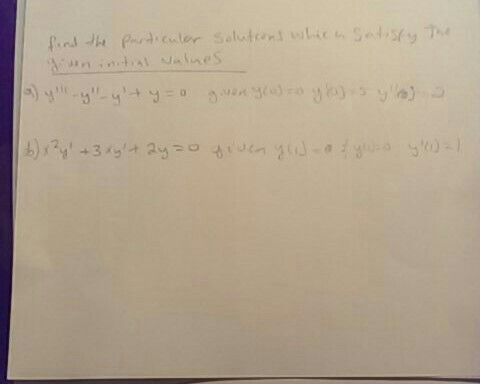 find the particular solutions which satisfy the
given initial values
a) y''' - y'' - y' + y = 0 given y(0)=0 y'(0)=5 y''(0)=2
b) x²y' + 3xy' + 2y = 0 given y(1)=0 y'(1)=1